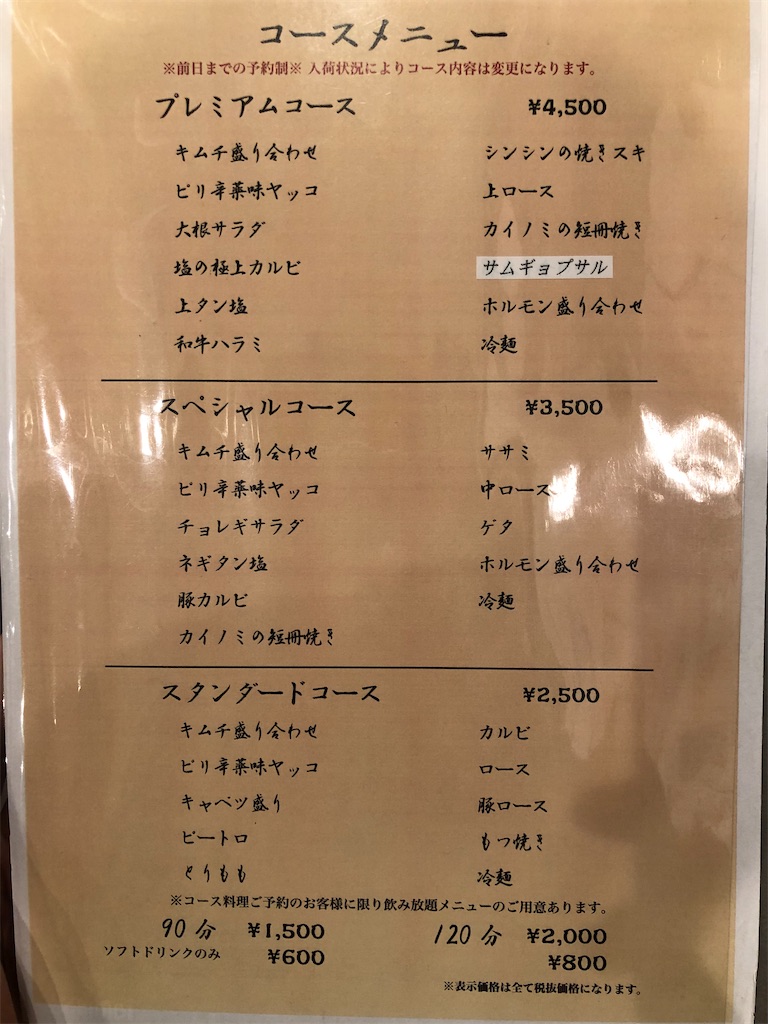 コースメニュー
※前日までの予約制※ 入荷状況によりコース内容は変更になります。
プレミアムコース ¥4,500
キムチ盛り合わせ
ピリ辛薬味ヤッコ
大根サラダ
塩の極上カルビ
上タン塩
和牛ハラミ
シンシンの焼きスキ
上ロース
カイノミの短冊焼き
サムギョプサル
ホルモン盛り合わせ
冷麺
スペシャルコース ¥3,500
キムチ盛り合わせ
ピリ辛薬味ヤッコ
チョレギサラダ
ネギタン塩
豚カルビ
カイノミの短冊焼き
ササミ
中ロース
ゲタ
ホルモン盛り合わせ
冷麺
スタンダードコース ¥2,500
キムチ盛り合わせ
ピリ辛薬味ヤッコ
キャベツ盛り
ピートロ
とりもも
カルビ
ロース
豚ロース
もつ焼き
冷麺
※コース料理ご予約のお客様に限り飲み放題メニューのご用意あります。
90分 ¥1,500 120分 ¥2,000
ソフトドリンクのみ ¥600 ¥800
※表示価格は全て税抜価格になります。